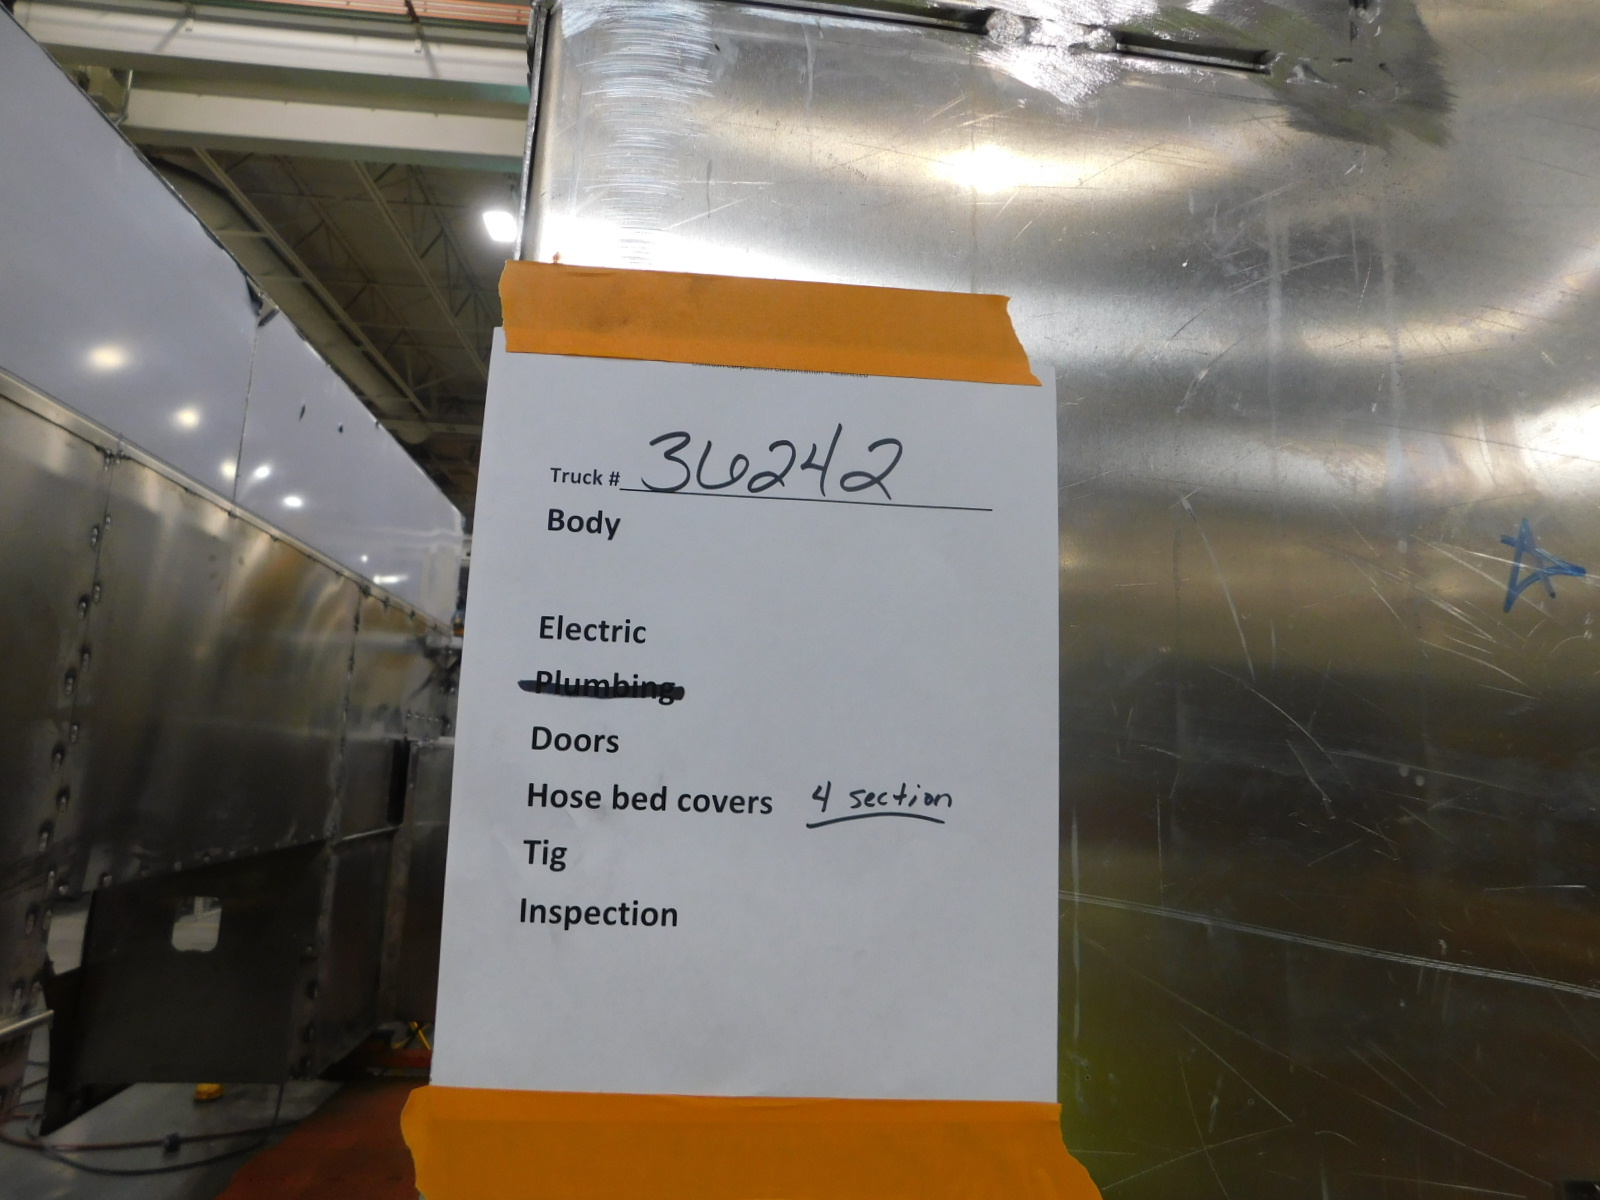 Truck # 36242
Body
Electric
Plumbing
Doors
Hose bed covers 4 section
Tig
Inspection